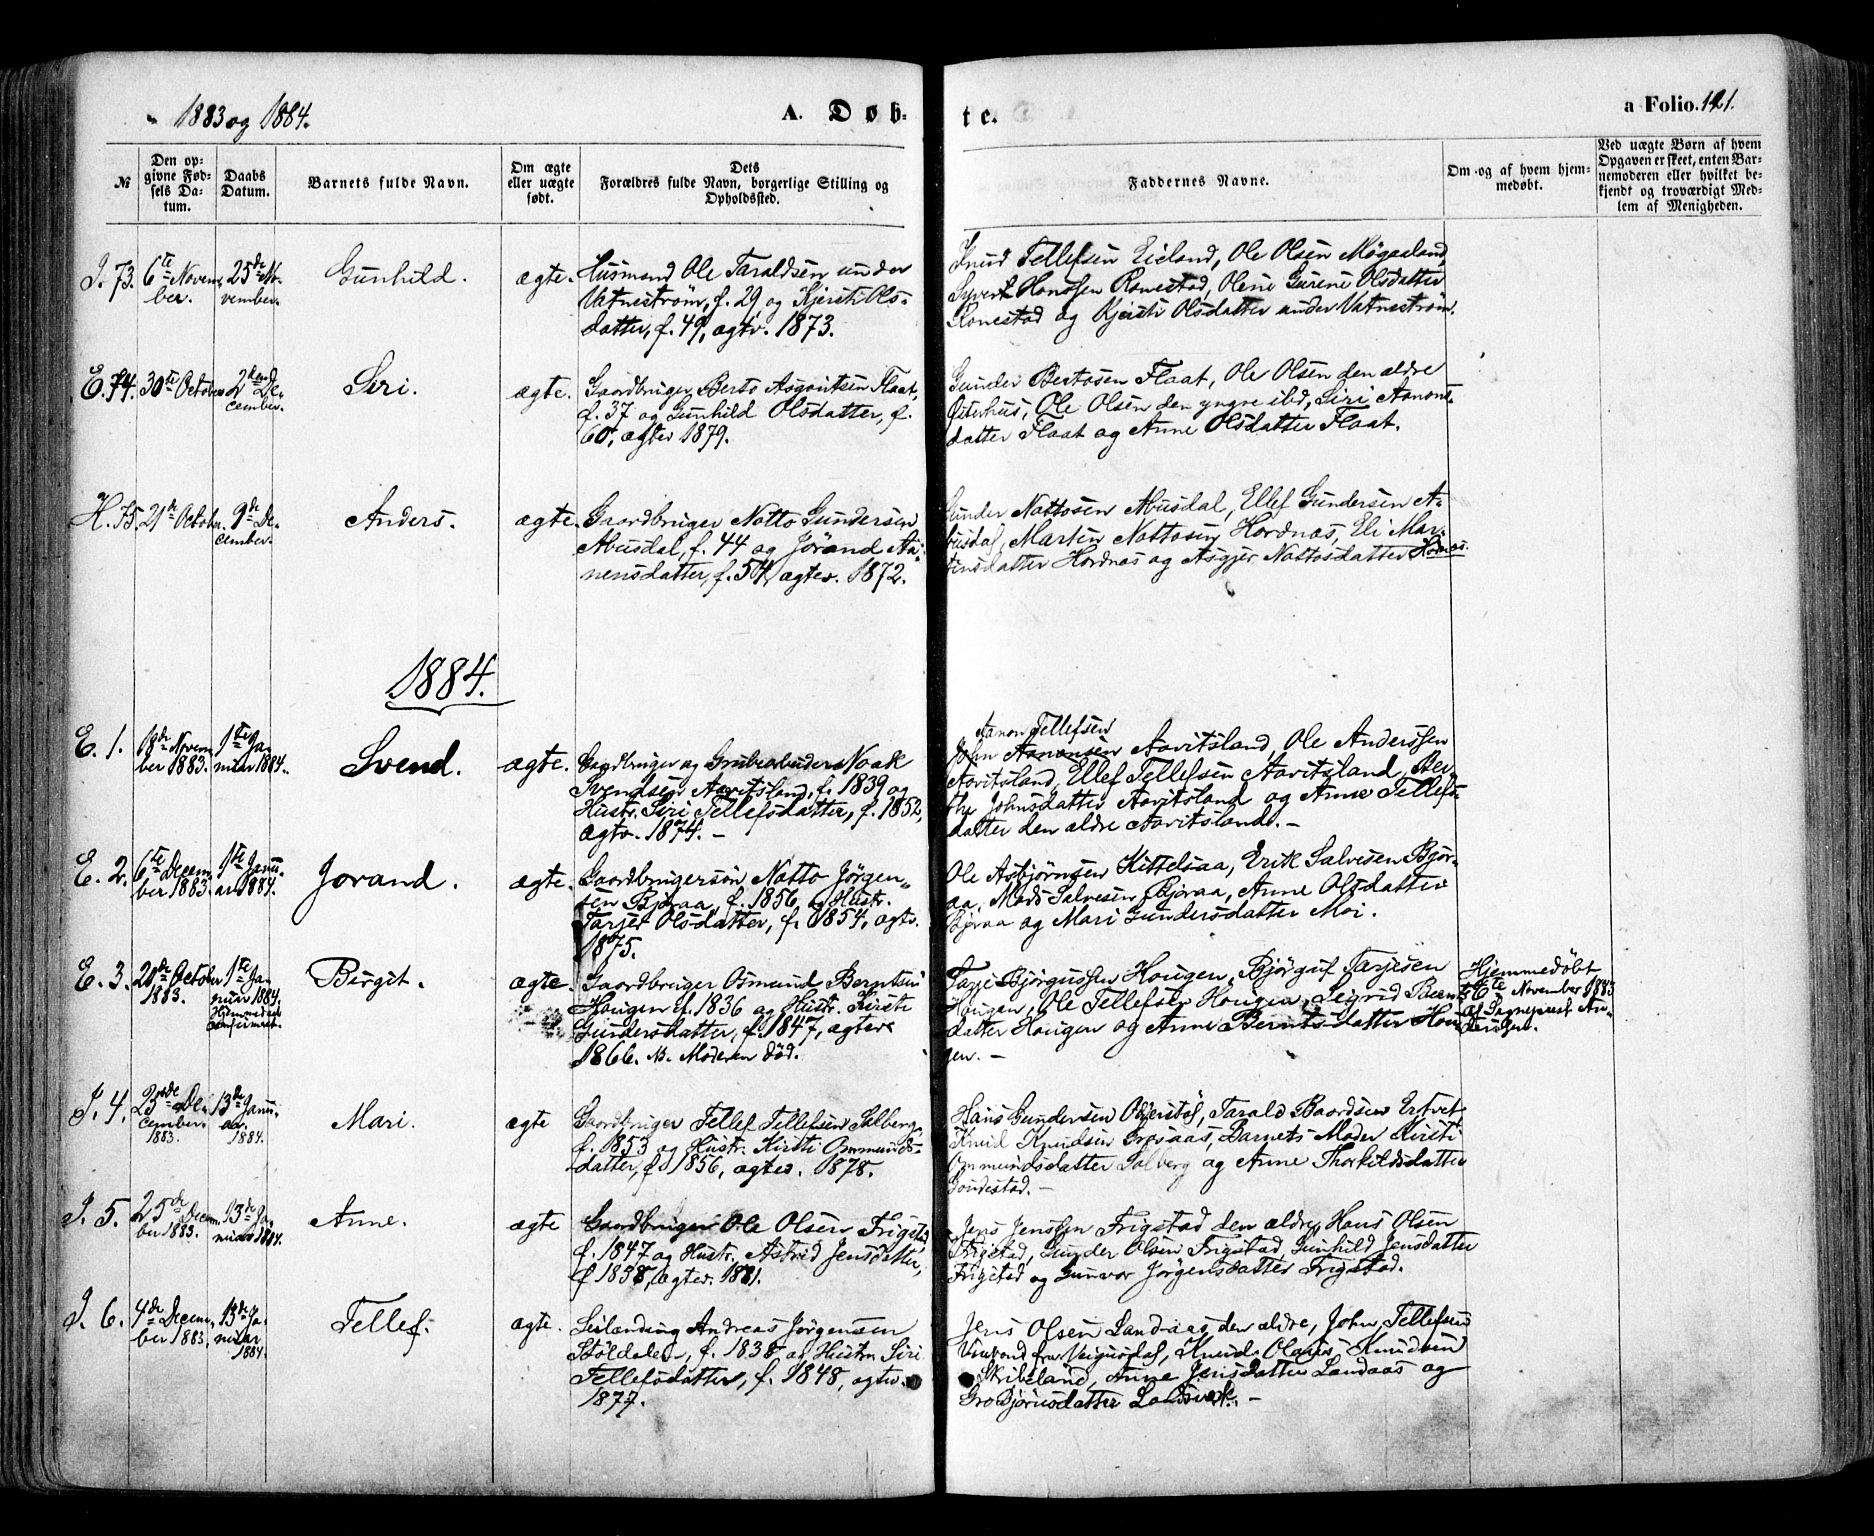 1883 og 1884.
A. Døb-
te.
a Folio. 121.
№
Den op-
givne Fød-
sels Da-
tum.
Daabs
Datum.
Barnets fulde Navn.
Om ægte
eller uægte
født.
Dets
Forældres fulde Navn, borgerlige Stilling og
Opholdssted.
Faddernes Navne.
Om og af hvem hjem-
medøbt.
Ved uægte Børn af hvem
Opgaven er skeet, enten Bar-
nemoderen eller hvilket be-
kjendt og troværdigt Med-
lem af Menigheden.
I. 73.
6te Novem-
ber.
25de No-
vember.
Gunhild.
ægte.
Husmand Ole Taraldsen under
Vatnestrøm, f. 29, og Kjersti Ols-
datter, f. 49, ægtv. 1873.
Knud Tellefsen Eieland, Ole Olsen Møgaeland,
Syvert Hansen Ronestad, Oline Gurine Olsdatter
Ronestad og Kjersti Olsdatter under Vatnestrøm.
E. 74.
30te October
2den De-
cember.
Siri.
ægte.
Gaardbruger Berto Asgautsen Flaat,
f. 37 og Gunhild Olsdatter, f.
60, ægtev 1879.
Gunder Bertosen Flaat, Ole Olsen den ældre
Østerhus, Ole Olsen den yngre ibd, Siri Aanons-
datter Flaat og Anne Olsdatter Flaat.
H. 75.
21de Octobr.
9de De-
cember.
Anders.
ægte.
Gaardbruger Notto Gundersen
Abusdal, f. 44 og Jørand Aa-
nensdatter, f. 54, ægtev. 1872.
Gunder Nottosen Abusdal, Ellef Gundersen A-
busdal, Martin Nottosen Hordnæs, Eli Mar-
tinsdatter Hordnæs og Asgjer Nottosdatter Hornæs.
1884.
E. 1.
18de Novem-
ber 1883.
1te Ja-
nuar 1884.
Svend.
ægte.
Gaardbruger og Grubearbeider Noak
Svendsen Aavitsland, f. 1839 og
Hustr. Siri Tellefsdatter, f. 1852,
ægtv. 1874. –
Aanon Tellefsen
John Aanonsen Aavitsland, Ole Anderssen
Aavitsland, Ellef Tellefsen Aavitsland, Ber-
the Johnsdatter Aavitsland og Anne Tellefs-
datter den ældre Aavitsland. –
E. 2.
6te Decem-
ber 1883.
1te Janu-
ar 1884.
Jorand.
ægte.
Gaardbrugersøn Notto Jørgen-
sen Bjoraa, f. 1856, og Hustr.
Tarjer Olsdatter, f. 1854, ægtv.
1875.
Ole Asbjørnsen Kittelsaa, Erik Salvesen Bjør-
aa, Mads Salvesen Bjoraa, Anne Olsdatter
Bjoraa og Mari Gundersdatter Moi.
E. 3.
20de October
1883.
1te Ja-
nuar 1884.
Hjemmedaab
confirmert.
Birgit.
ægte.
Gaardbruger Osmund Berntsen
Hougen f. 1836 og Hustr. Kirsti
Gundersdatter, f. 1847, ægtev
1866. NB. Moderen død.
Tarje Bjørgusen Hougen, Bjørguf Tarjesen
Hougen, Ole Tellefsen Hougen, Sigrid Bernts-
datter Hougen og Anne Berntsdatter Hou-
gen. –
Hjemmedøbt
6te November 1883
af Sognepræst An-
I. 4.
23de De-
cember
1883.
13de Janu-
ar.
1884.
Mari.
ægte
Gaardbruger Tellef Tellefsen Solberg
f. 1853 og Hustr. Kirsti Ommunds-
datter, f. 1856, ægtev. 1878.
Hans Gundersen Oggestøl, Tarald Baardsen Ertvet
Knud Knudsen Birkraas, Barnets Moder Kirsti
Ommundsdatter Solberg og Anne Thorkildsdatter
Goudestad. –
I. 5.
25de Decem-
ber 1883.
13de Ja-
nuar 1884.
Anne.
ægte
Gaardbruger Ole Olsen Frigstad
f. 1847 og Hustr. Astrid Jensdatter,
f 1858, ægtev. 1881.
Jens Jenssen Frigstad den ældre, Hans Olsen
Frigstad, Gunder Olsen Frigstad, Gunhild Jensdatter
Frigstad og Gunvor Jørgensdatter Frigstad.
I. 6.
4de Decem-
ber 1883.
13de Ja-
nuar
1884.
Tellef.
ægte.
Leilænding Andreas Jørgensen
Støldalen, f. 1838 og Hustr. Siri
Tellefsdatter, f. 1848, ægtv.
1877.
Jens Olsen Landaas den ældre, John Tellefsen
fra Veigusdal, Knud Olaus Knudsen
Skibeland, Anne Jensdatter Landaas og
Gro Bjørnsdatter Landsverk. –